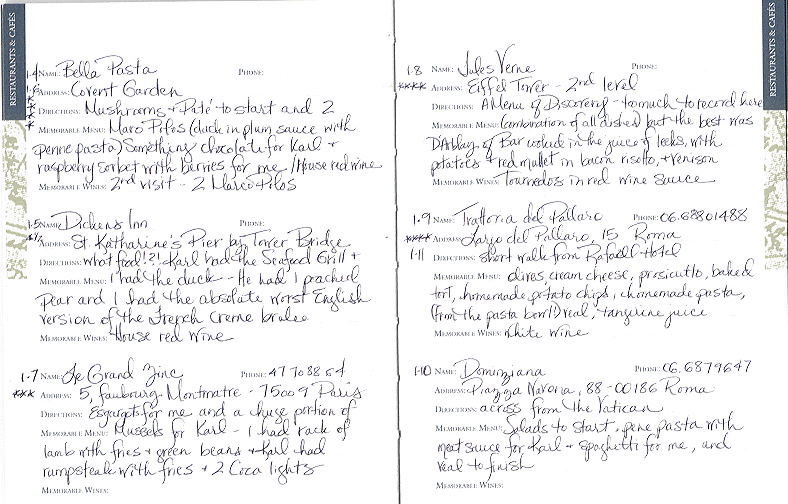 RESTAURANTS & CAFÉS
1·4 NAME: Bella Pasta PHONE:
1·6 ADDRESS: Covent Garden
*** DIRECTIONS: Mushrooms + Paté to start and 2
* MEMORABLE MENU: Maro Pilos (duck in plum sauce with
penne pasta) Something chocolate for Karl +
raspberry sorbet with berries for me / House red wine
MEMORABLE WINES: 2nd visit - 2 Marco Pilos
1·5 NAME: Dickens Inn PHONE:
*½ ADDRESS: St. Katharine's Pier by Tower Bridge
DIRECTIONS: what food!?! Karl had the Seafood Grill +
MEMORABLE MENU: I had the duck - He had 1 poached
pear and I had the absolute worst English
version of the French creme brulee
MEMORABLE WINES: House red wine
1·7 NAME: Le Grand Zinc PHONE: 47 70 88 64
*** ADDRESS: 5, faubourg Montmatre - 75009 Paris
DIRECTIONS: Esgargots for me and a huge portion of
MEMORABLE MENU: Mussels for Karl - I had rack of
lamb with fries + green beans + Karl had
rumpsteak with fries + 2 Coca lights
MEMORABLE WINES:
RESTAURANTS & CAFÉS
1·8 NAME: Jules Verne PHONE:
**** ADDRESS: Eiffel Tower - 2nd level
DIRECTIONS: A Menu of Discovery - too much to record here
MEMORABLE MENU: (combination of all dishes) but the best was
of Bar cooked in the juice of leeks, with
potatoes + red mullet in bacon risotto, + venison
MEMORABLE WINES: Tournedos in red wine sauce
1·9 NAME: Trattoria del Pallaro PHONE: 06.68801488
**** ADDRESS: Largo del Pallaro, 15 Roma
1·11 DIRECTIONS: short walk from Rafaell Hotel
MEMORABLE MENU: olives, cream cheese, prosicutto, baked
tort, homemade potato chips, homemade pasta,
(from the pasta bowl!) veal, tangerine juice
MEMORABLE WINES: white wine
1·10 NAME: Dominziana PHONE: 06.6879647
ADDRESS: Piazza Navona, 88-00186 Roma
DIRECTIONS: across from the Vatican
MEMORABLE MENU: Salads to start, pene pasta with
meat sauce for Karl + spaghetti for me, and
veal to finish
MEMORABLE WINES: